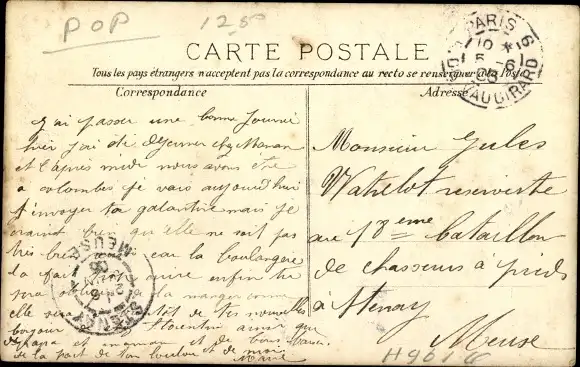 POP 125
CARTE POSTALE
Tous les pays étrangers n'acceptent pas la correspondance au recto se renseigner à la Poste
Correspondance
Adresse
PARIS
10
5 - 6
VAUGIRARD
j'ai passer une bonne journee
hier j'ai été dejeuner chez Maman
et l'apres midi nous avons été
a colombes je vais aujourd'hui
t'envoyer ta galantine mais je
craint bien qu'elle ne soit pas
très bien car la boulangere
la fait cuire enfin tu
sera la manger comme
elle sera de tes nouvelles
bonjour Florentin ainsi que
papa et maman et de bons
de la part de ton loulou et de moi
Marie
MEUSE
STENAY
Monsieur Jules
Watrelot reserviste
au 18eme bataillon
de chasseurs à pieds
à Stenay
Meuse